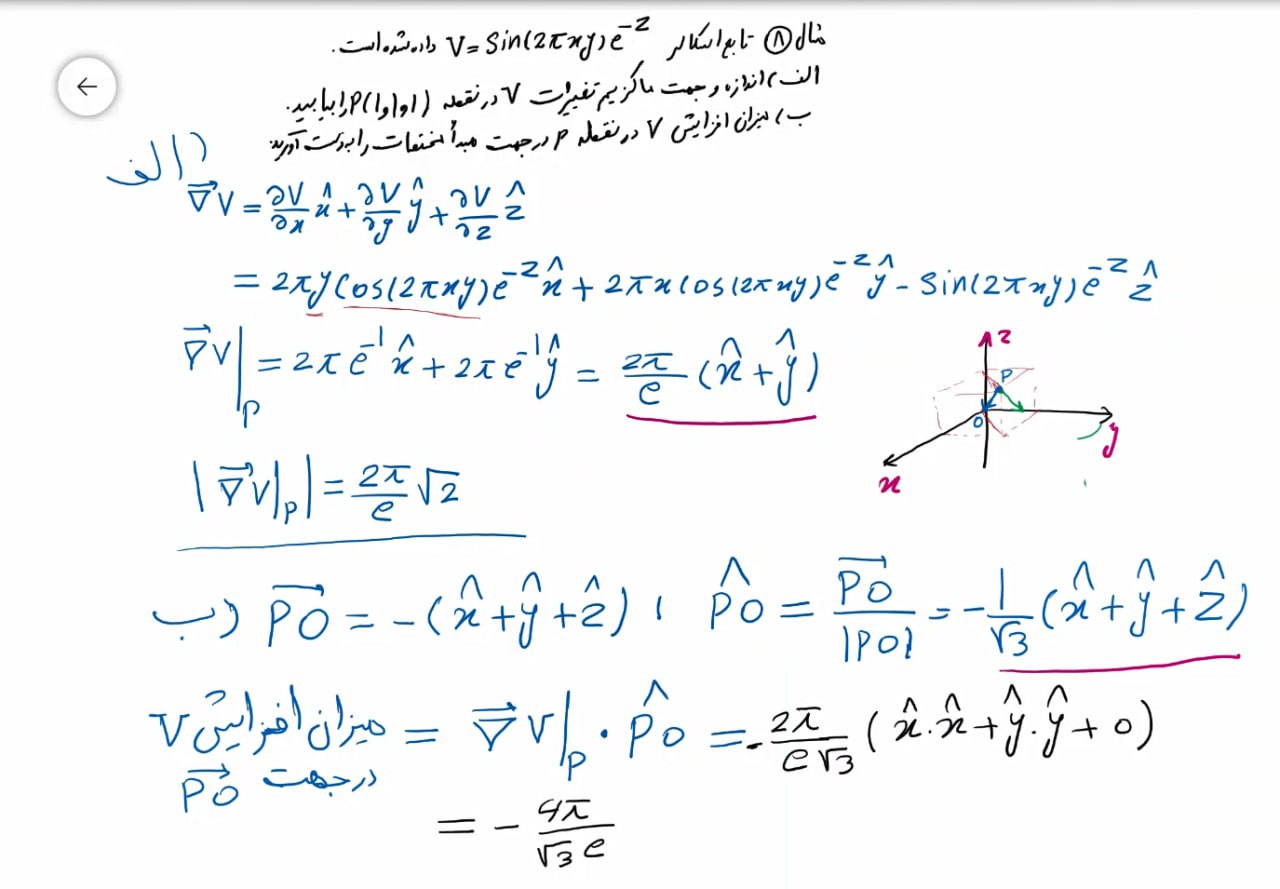 مثال ⑧ تابع اسکالر V = Sin(2πxy)e^{-z} داده شده است.
الف) اندازه و جهت ماکزیمم تغییرات V در نقطه P(1,1,1) را بیابید.
ب) میزان افزایش V در نقطه P در جهت مبدأ مختصات را بدست آورید.
الف)
∇⃗V = ∂V/∂x x̂ + ∂V/∂y ŷ + ∂V/∂z ẑ
= 2πy Cos(2πxy)e^{-z} x̂ + 2πx Cos(2πxy)e^{-z} ŷ - Sin(2πxy)e^{-z} ẑ
∇⃗V|_P = 2πe^{-1} x̂ + 2πe^{-1} ŷ = 2π/e (x̂ + ŷ)
z
P
O
y
x
|∇⃗V|_P| = 2π/e √2
ب) PO⃗ = -(x̂ + ŷ + ẑ) , P̂O = PO⃗/|PO| = -1/√3 (x̂ + ŷ + ẑ)
میزان افزایش V در جهت PO⃗ = ∇⃗V|_P · P̂O = -2π/e√3 (x̂.x̂ + ŷ.ŷ + 0)
= - 4π/√3 e